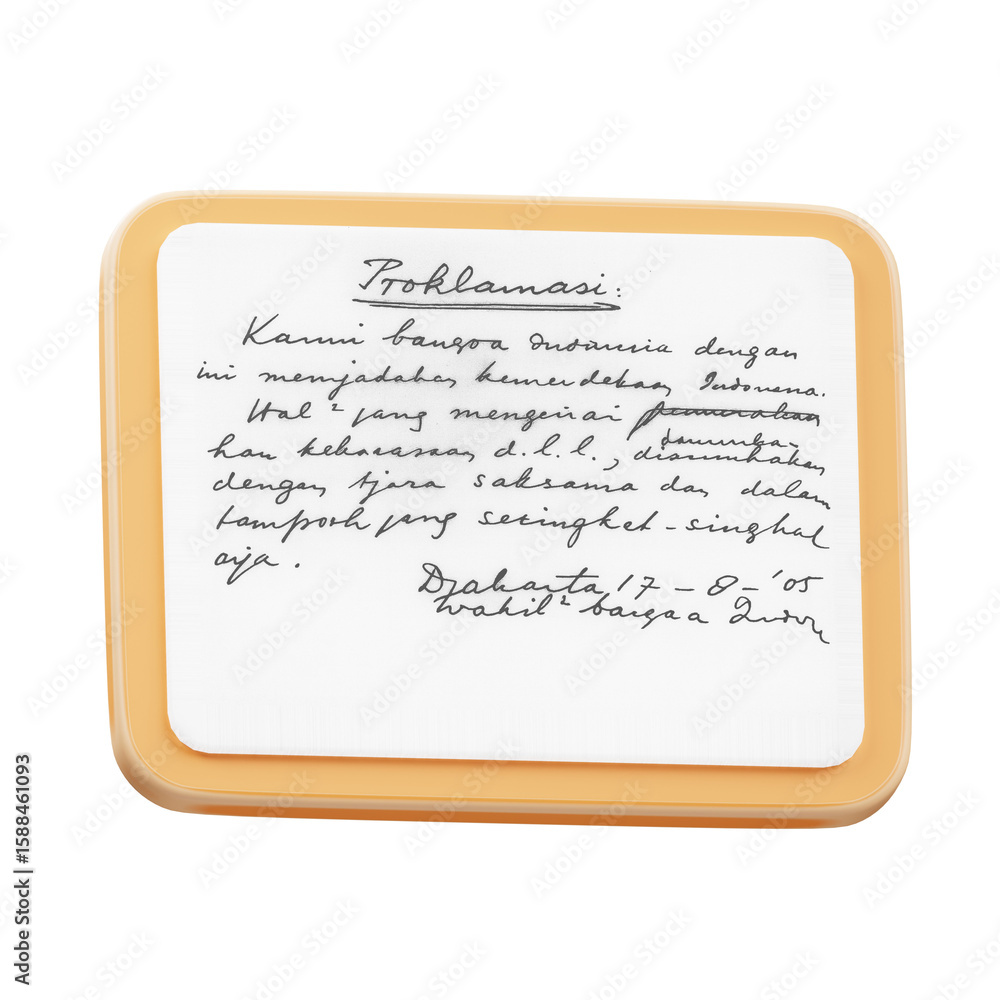 Proklamasi:
Kami bangsa Indonesia dengan
ini menjadakan kemerdekaan Indonesia.
Hal² jang mengenai
han kekoasaan d.l.l., disumhakan
dengan tjara saksama dan dalam
tampoh jang setingket-singhat
aja.
Djakarta 17 - 8 - '05
Wakil² bangsa
Adobe Stock | #1588461093